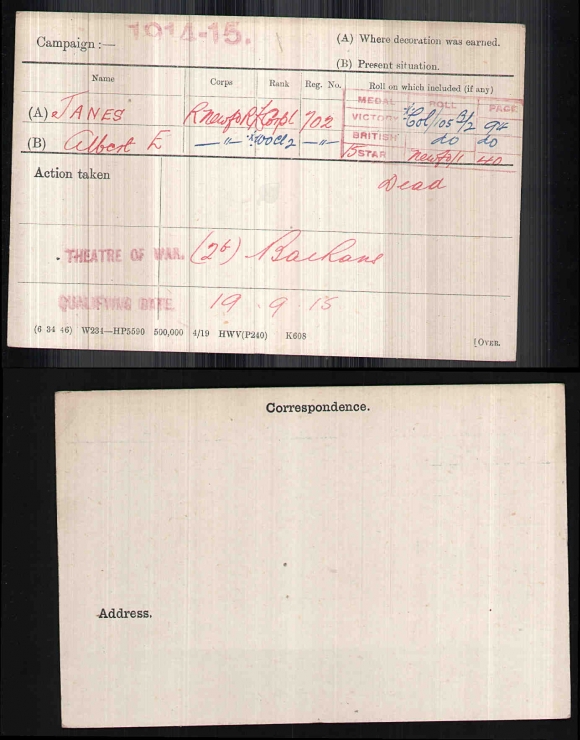 Campaign :— 1914-15.
(A) Where decoration was earned.
(B) Present situation.
Name Corps Rank Reg. No. Roll on which included (if any)
MEDAL ROLL PAGE
(A) JANES R Newf. R Corpl 702
VICTORY Col/105 B/2 92
(B) Albert E —„— WOCl2 —„—
BRITISH do do
15 STAR Newf/1 40
Action taken
Dead
THEATRE OF WAR. (2b) Balkans
QUALIFYING DATE. 19 . 9 . 15
(6 34 46) W234—HP5590 500,000 4/19 HWV(P240) K608
[OVER.
Correspondence.
Address.